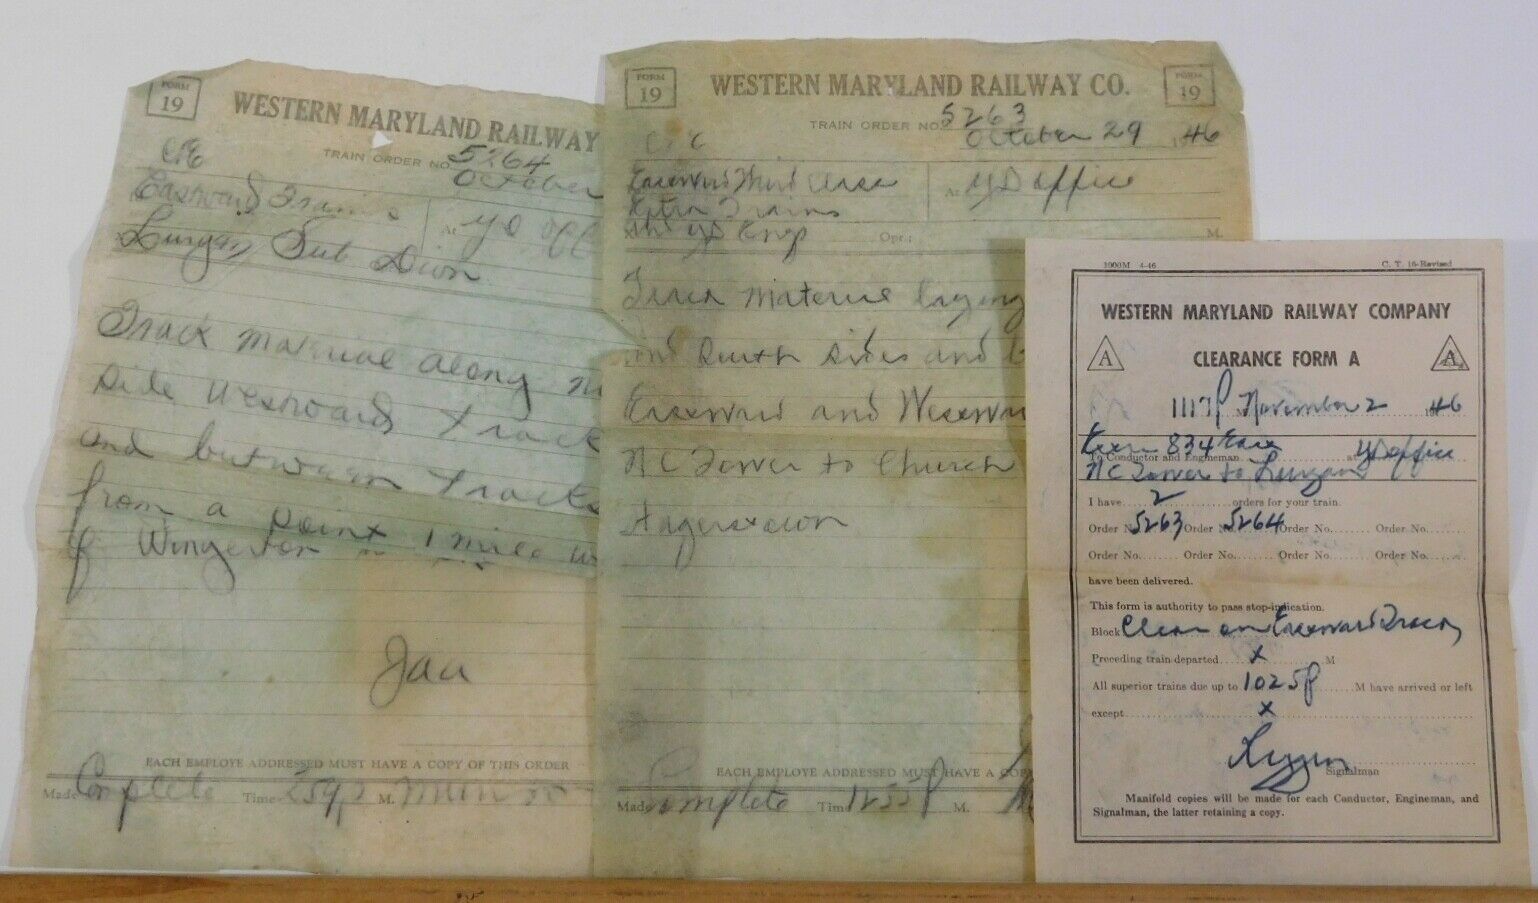 FORM 19
WESTERN MARYLAND RAILWAY
TRAIN ORDER NO. 5264
October
Eastward Trains
At YD off
Lurgan Sub Divn
Track material along n
side westward track
and between tracks
from a point 1 mile w
of Wingerton
Jau
EACH EMPLOYE ADDRESSED MUST HAVE A COPY OF THIS ORDER
Made Complete Time 259 P M.
FORM 19
WESTERN MARYLAND RAILWAY CO.
FORM 19
TRAIN ORDER NO. 5263
October 29 1946
Eastward Third Class
At YD office
Extra Trains
YD Engs Opr.; M.
Track material laying
and South sides and b
Eastward and Westwar
NC Tower to Church
Hagerstown
EACH EMPLOYE ADDRESSED MUST HAVE A COP
Made Complete Time 1255 P M.
1000M 4-46 C. T. 16-Revised
WESTERN MARYLAND RAILWAY COMPANY
A CLEARANCE FORM A A
1117 P M November 2 1946
Extra 834 East
To Conductor and Engineman at YD office
NC Tower to Lurgan
I have 2 orders for your train.
Order No. 5263 Order No. 5264 Order No. Order No.
Order No. Order No. Order No. Order No.
have been delivered.
This form is authority to pass stop-indication.
Block Clear on Eastward Track
Preceding train departed x M
All superior trains due up to 1025 P M have arrived or left
except x
Signalman
Manifold copies will be made for each Conductor, Engineman, and
Signalman, the latter retaining a copy.